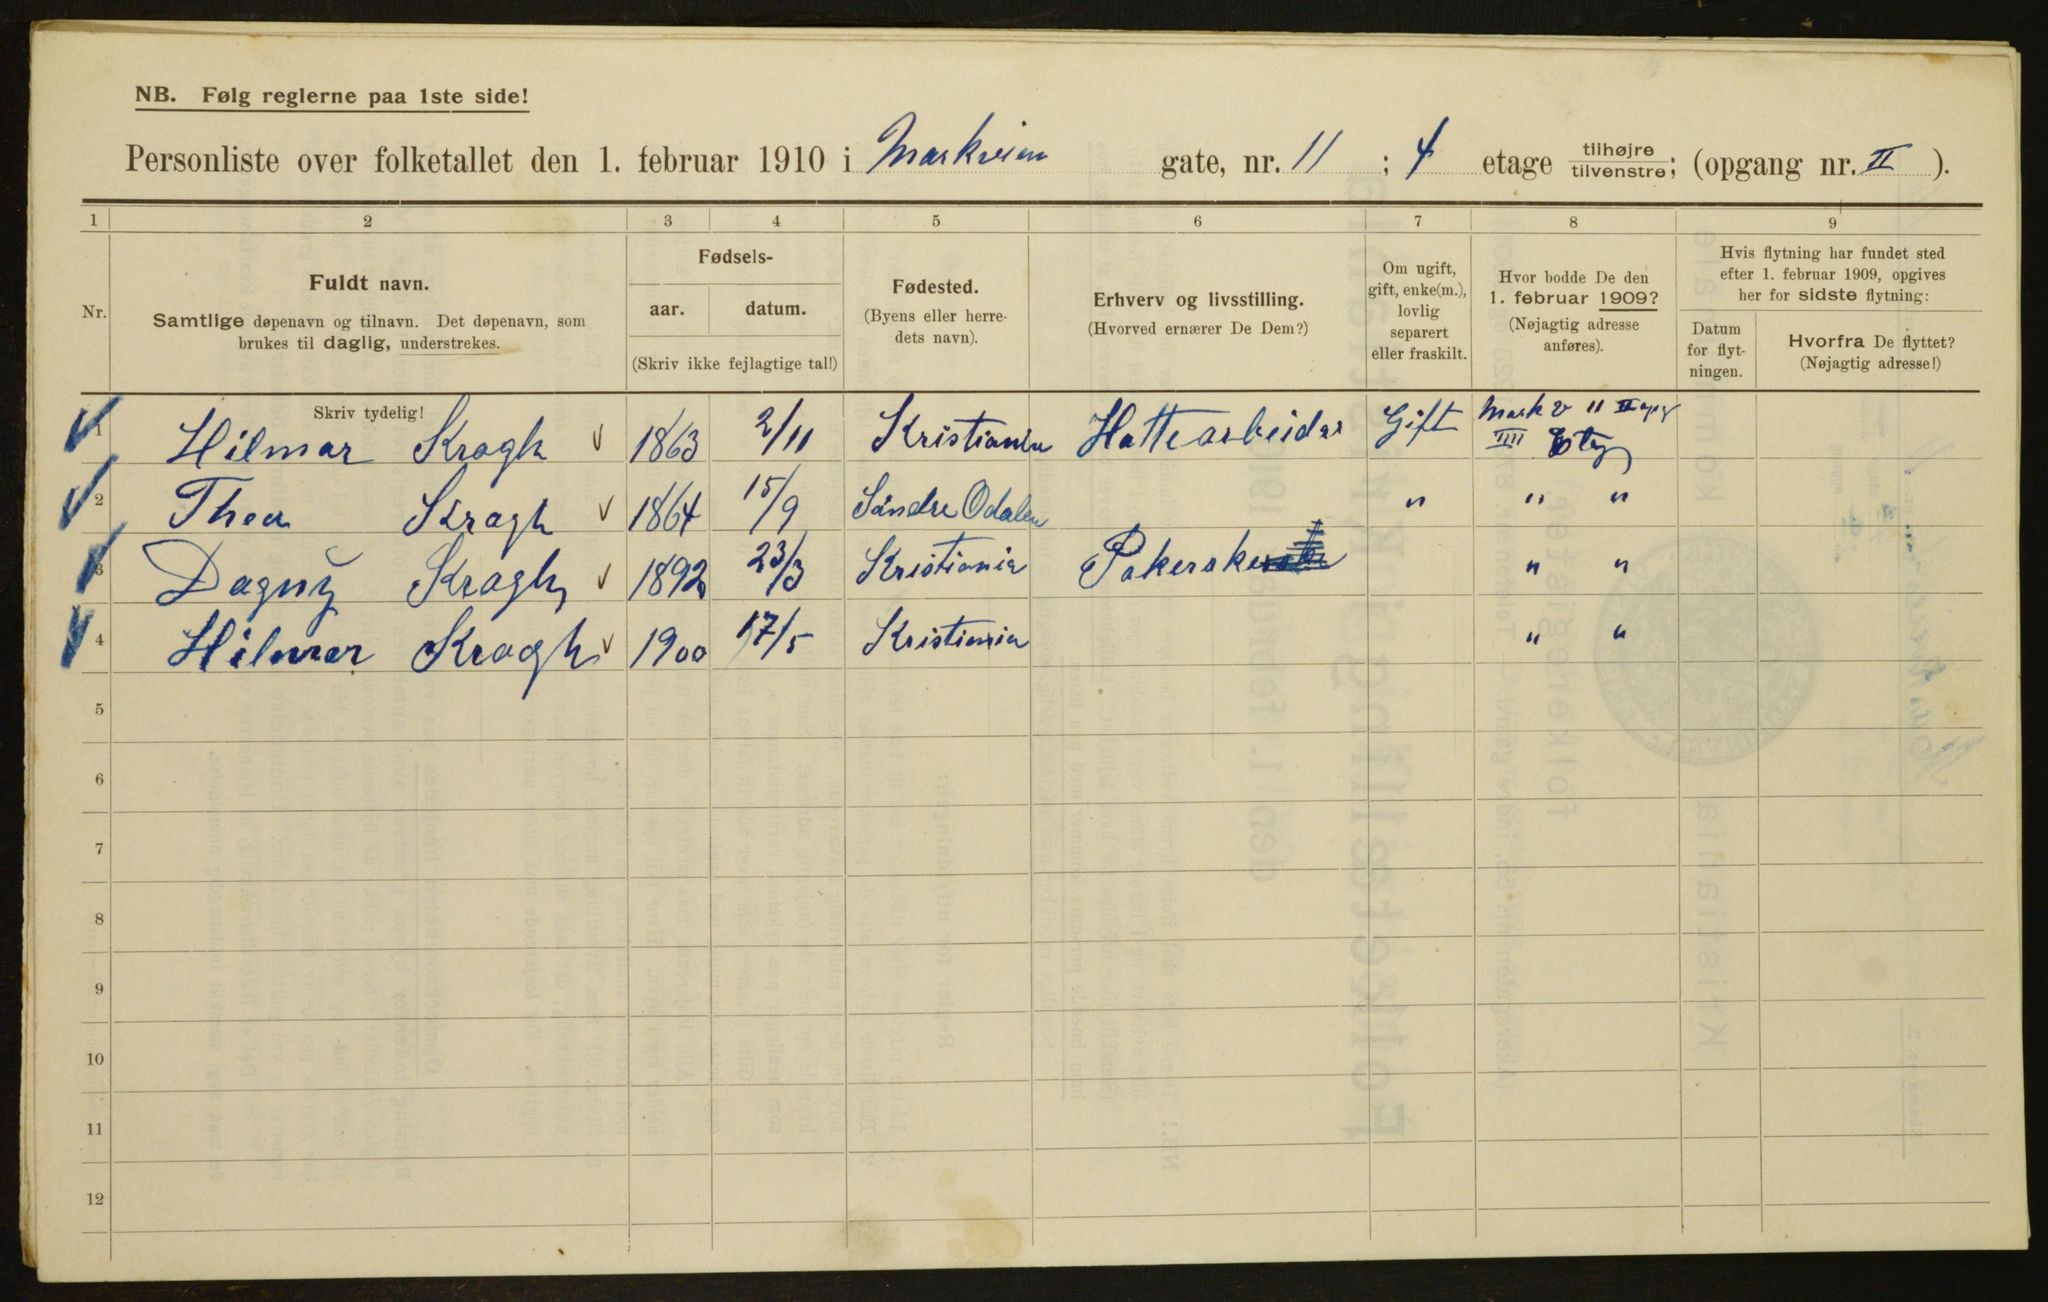 NB. Følg reglerne paa 1ste side!
Personliste over folketallet den 1. februar 1910 i Markveien gate, nr. 11 ; 4 etage tilhøjre tilvenstre; (opgang nr. II ).
1 2 3 4 5 6 7 8 9
Nr.
Fuldt navn.
Samtlige døpenavn og tilnavn. Det døpenavn, som
brukes til daglig, understrekes.
Fødsels-
aar. datum.
(Skriv ikke fejlagtige tal!)
Fødested.
(Byens eller herre-
dets navn).
Erhverv og livsstilling.
(Hvorved ernærer De Dem?)
Om ugift,
gift, enke(m.),
lovlig
separert
eller fraskilt.
Hvor bodde De den
1. februar 1909?
(Nøjagtig adresse
anføres).
Hvis flytning har fundet sted
efter 1. februar 1909, opgives
her for sidste flytning:
Datum
for flyt-
ningen.
Hvorfra De flyttet?
(Nøjagtig adresse!)
Skriv tydelig!
1 Hilmar Krogh 1863 2/11 Kristiania Hattearbeider Gift Mark v 11 II opg
IIII Etg
2 Thea Krogh 1864 15/9 Söndre Odalen " " "
3 Dagny Krogh 1892 23/3 Kristiania Pakerske " "
4 Hilmar Krogh 1900 17/5 Kristiania " "
5
6
7
8
9
10
11
12